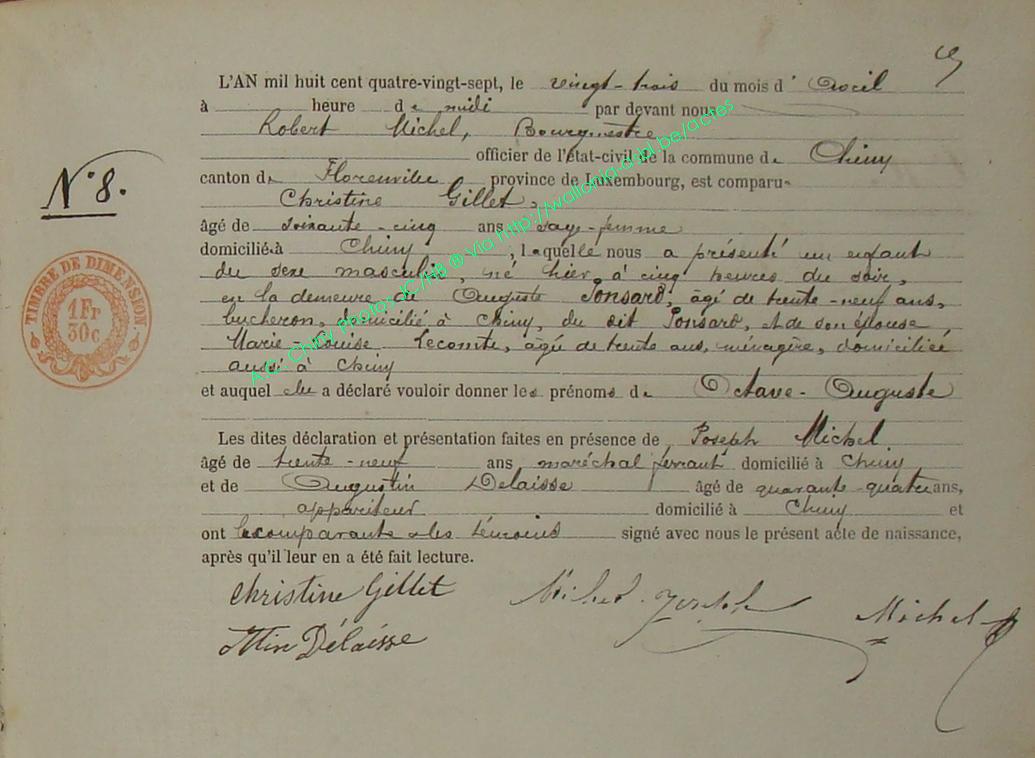 L'AN mil huit cent quatre-vingt-sept, le vingt-trois du mois d' Avril
à heure de midi par devant nous
Robert Michel, Bourgmestre
officier de l'état-civil de la commune de Chiny
canton de Florenville province de Luxembourg, est comparue
Christine Gillet,
âgé de soixante-cinq ans sage-femme
domicilié à Chiny, laquelle nous a présenté un enfant
du sexe masculin, né hier, à cinq heures du soir,
en la demeure de Auguste Ponsard, âgé de trente-neuf ans,
bucheron, domicilié à Chiny, du dit Ponsard, et de son épouse
Marie-Louise Lecomte, âgée de trente ans, ménagère, domiciliée
aussi à Chiny
et auquel elle a déclaré vouloir donner les prénoms de Octave-Auguste
Les dites déclaration et présentation faites en présence de Joseph Michel
âgé de trente-neuf ans maréchal ferrant domicilié à Chiny
et de Augustin Delaisse âgé de quarante-quatre ans,
appariteur domicilié à Chiny et
ont la comparante & les témoins signé avec nous le présent acte de naissance,
après qu'il leur en a été fait lecture.
Christine Gillet Michel Joseph Michel
Atin Délaisse
N° 8.
TIMBRE DE DIMENSION
1 Fr
30 C
via http://wallonia.dibl.be/actes